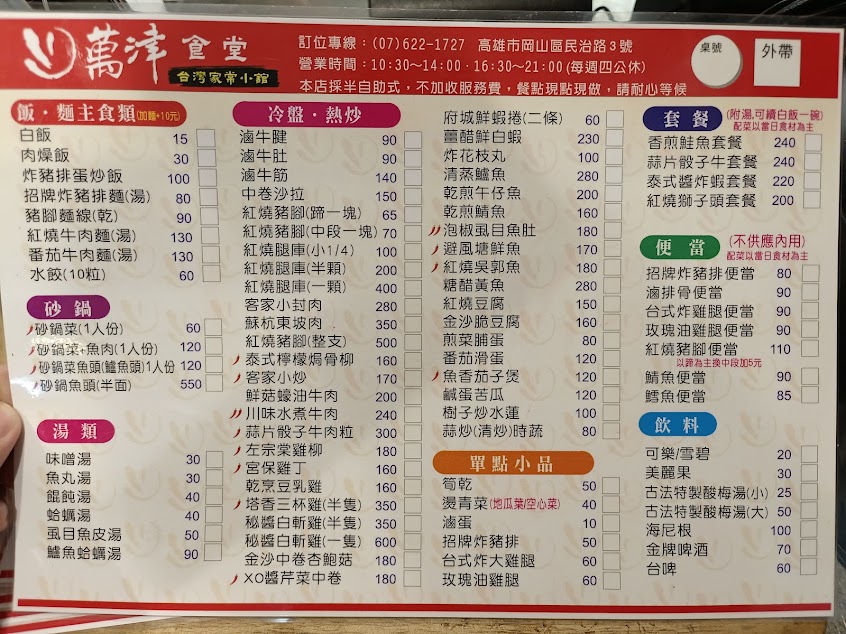 萬津食堂
台灣家常小館
訂位專線：(07)622-1727 高雄市岡山區民治路3號
營業時間：10:30~14:00・16:30~21:00(每週四公休)
本店採半自助式，不加收服務費，餐點現點現做，請耐心等候
桌號
外帶
飯・麵主食類(加麵+10元)
白飯 15
肉燥飯 30
炸豬排蛋炒飯 100
招牌炸豬排麵(湯) 80
豬腳麵線(乾) 90
紅燒牛肉麵(湯) 130
番茄牛肉麵(湯) 130
水餃(10粒) 60
砂鍋
砂鍋菜(1人份) 60
砂鍋菜+魚肉(1人份) 120
砂鍋菜魚頭(鱸魚頭)1人份 120
砂鍋魚頭(半面) 550
湯類
味噌湯 30
魚丸湯 30
餛飩湯 40
蛤蠣湯 40
虱目魚皮湯 50
鱸魚蛤蠣湯 90
冷盤・熱炒
滷牛腱 90
滷牛肚 90
滷牛筋 140
中卷沙拉 150
紅燒豬腳(蹄一塊) 65
紅燒豬腳(中段一塊) 70
紅燒腿庫(小1/4) 100
紅燒腿庫(半顆) 200
紅燒腿庫(一顆) 400
客家小封肉 280
蘇杭東坡肉 350
紅燒豬腳(整支) 500
泰式檸檬焗骨柳 160
客家小炒 170
鮮菇蠔油牛肉 200
川味水煮牛肉 240
蒜片骰子牛肉粒 300
左宗棠雞柳 180
宮保雞丁 160
乾烹豆乳雞 160
塔香三杯雞(半隻) 350
秘醬白斬雞(半隻) 350
秘醬白斬雞(一隻) 600
金沙中卷杏鮑菇 180
XO醬芹菜中卷 180
府城鮮蝦捲(二條) 60
薑醋鮮白蝦 230
炸花枝丸 100
清蒸鱸魚 280
乾煎午仔魚 200
乾煎鯖魚 160
泡椒虱目魚肚 180
避風塘鮮魚 170
紅燒吳郭魚 180
糖醋黃魚 280
紅燒豆腐 150
金沙脆豆腐 160
煎菜脯蛋 80
番茄滑蛋 120
魚香茄子煲 120
鹹蛋苦瓜 120
樹子炒水蓮 100
蒜炒(清炒)時蔬 80
單點小品
筍乾 50
燙青菜(地瓜葉/空心菜) 40
滷蛋 10
招牌炸豬排 50
台式炸大雞腿 60
玫瑰油雞腿 60
套餐
(附湯,可續白飯一碗)
配菜以當日食材為主
香煎鮭魚套餐 240
蒜片骰子牛套餐 240
泰式醬炸蝦套餐 220
紅燒獅子頭套餐 200
便當
(不供應內用)
配菜以當日食材為主
招牌炸豬排便當 80
滷排骨便當 90
台式炸雞腿便當 90
玫瑰油雞腿便當 90
紅燒豬腳便當 110
以蹄為主換中段加5元
鯖魚便當 90
鱈魚便當 85
飲料
可樂/雪碧 20
美麗果 30
古法特製酸梅湯(小) 25
古法特製酸梅湯(大) 50
海尼根 100
金牌啤酒 70
台啤 60